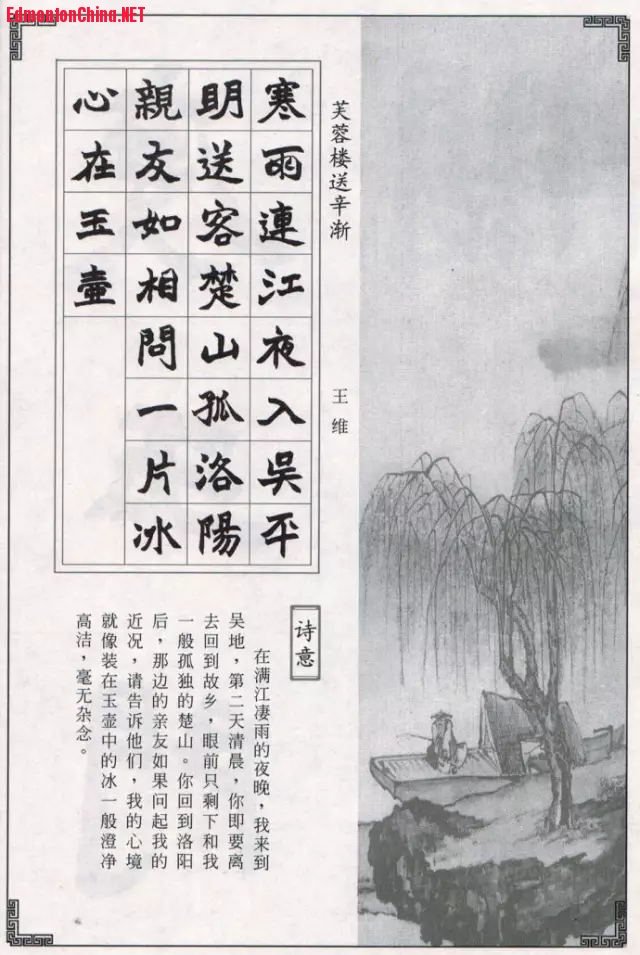 EdmontonChina.NET
芙蓉楼送辛渐
王维
寒雨連江夜入吳平
明送客楚山孤洛陽
親友如相問一片冰
心在玉壺
诗意
在满江凄雨的夜晚，我来到
吴地，第二天清晨，你即要离
去回到故乡，眼前只剩下和我
一般孤独的楚山。你回到洛阳
后，那边的亲友如果问起我的
近况，请告诉他们，我的心境
就像装在玉壶中的冰一般澄净
高洁，毫无杂念。